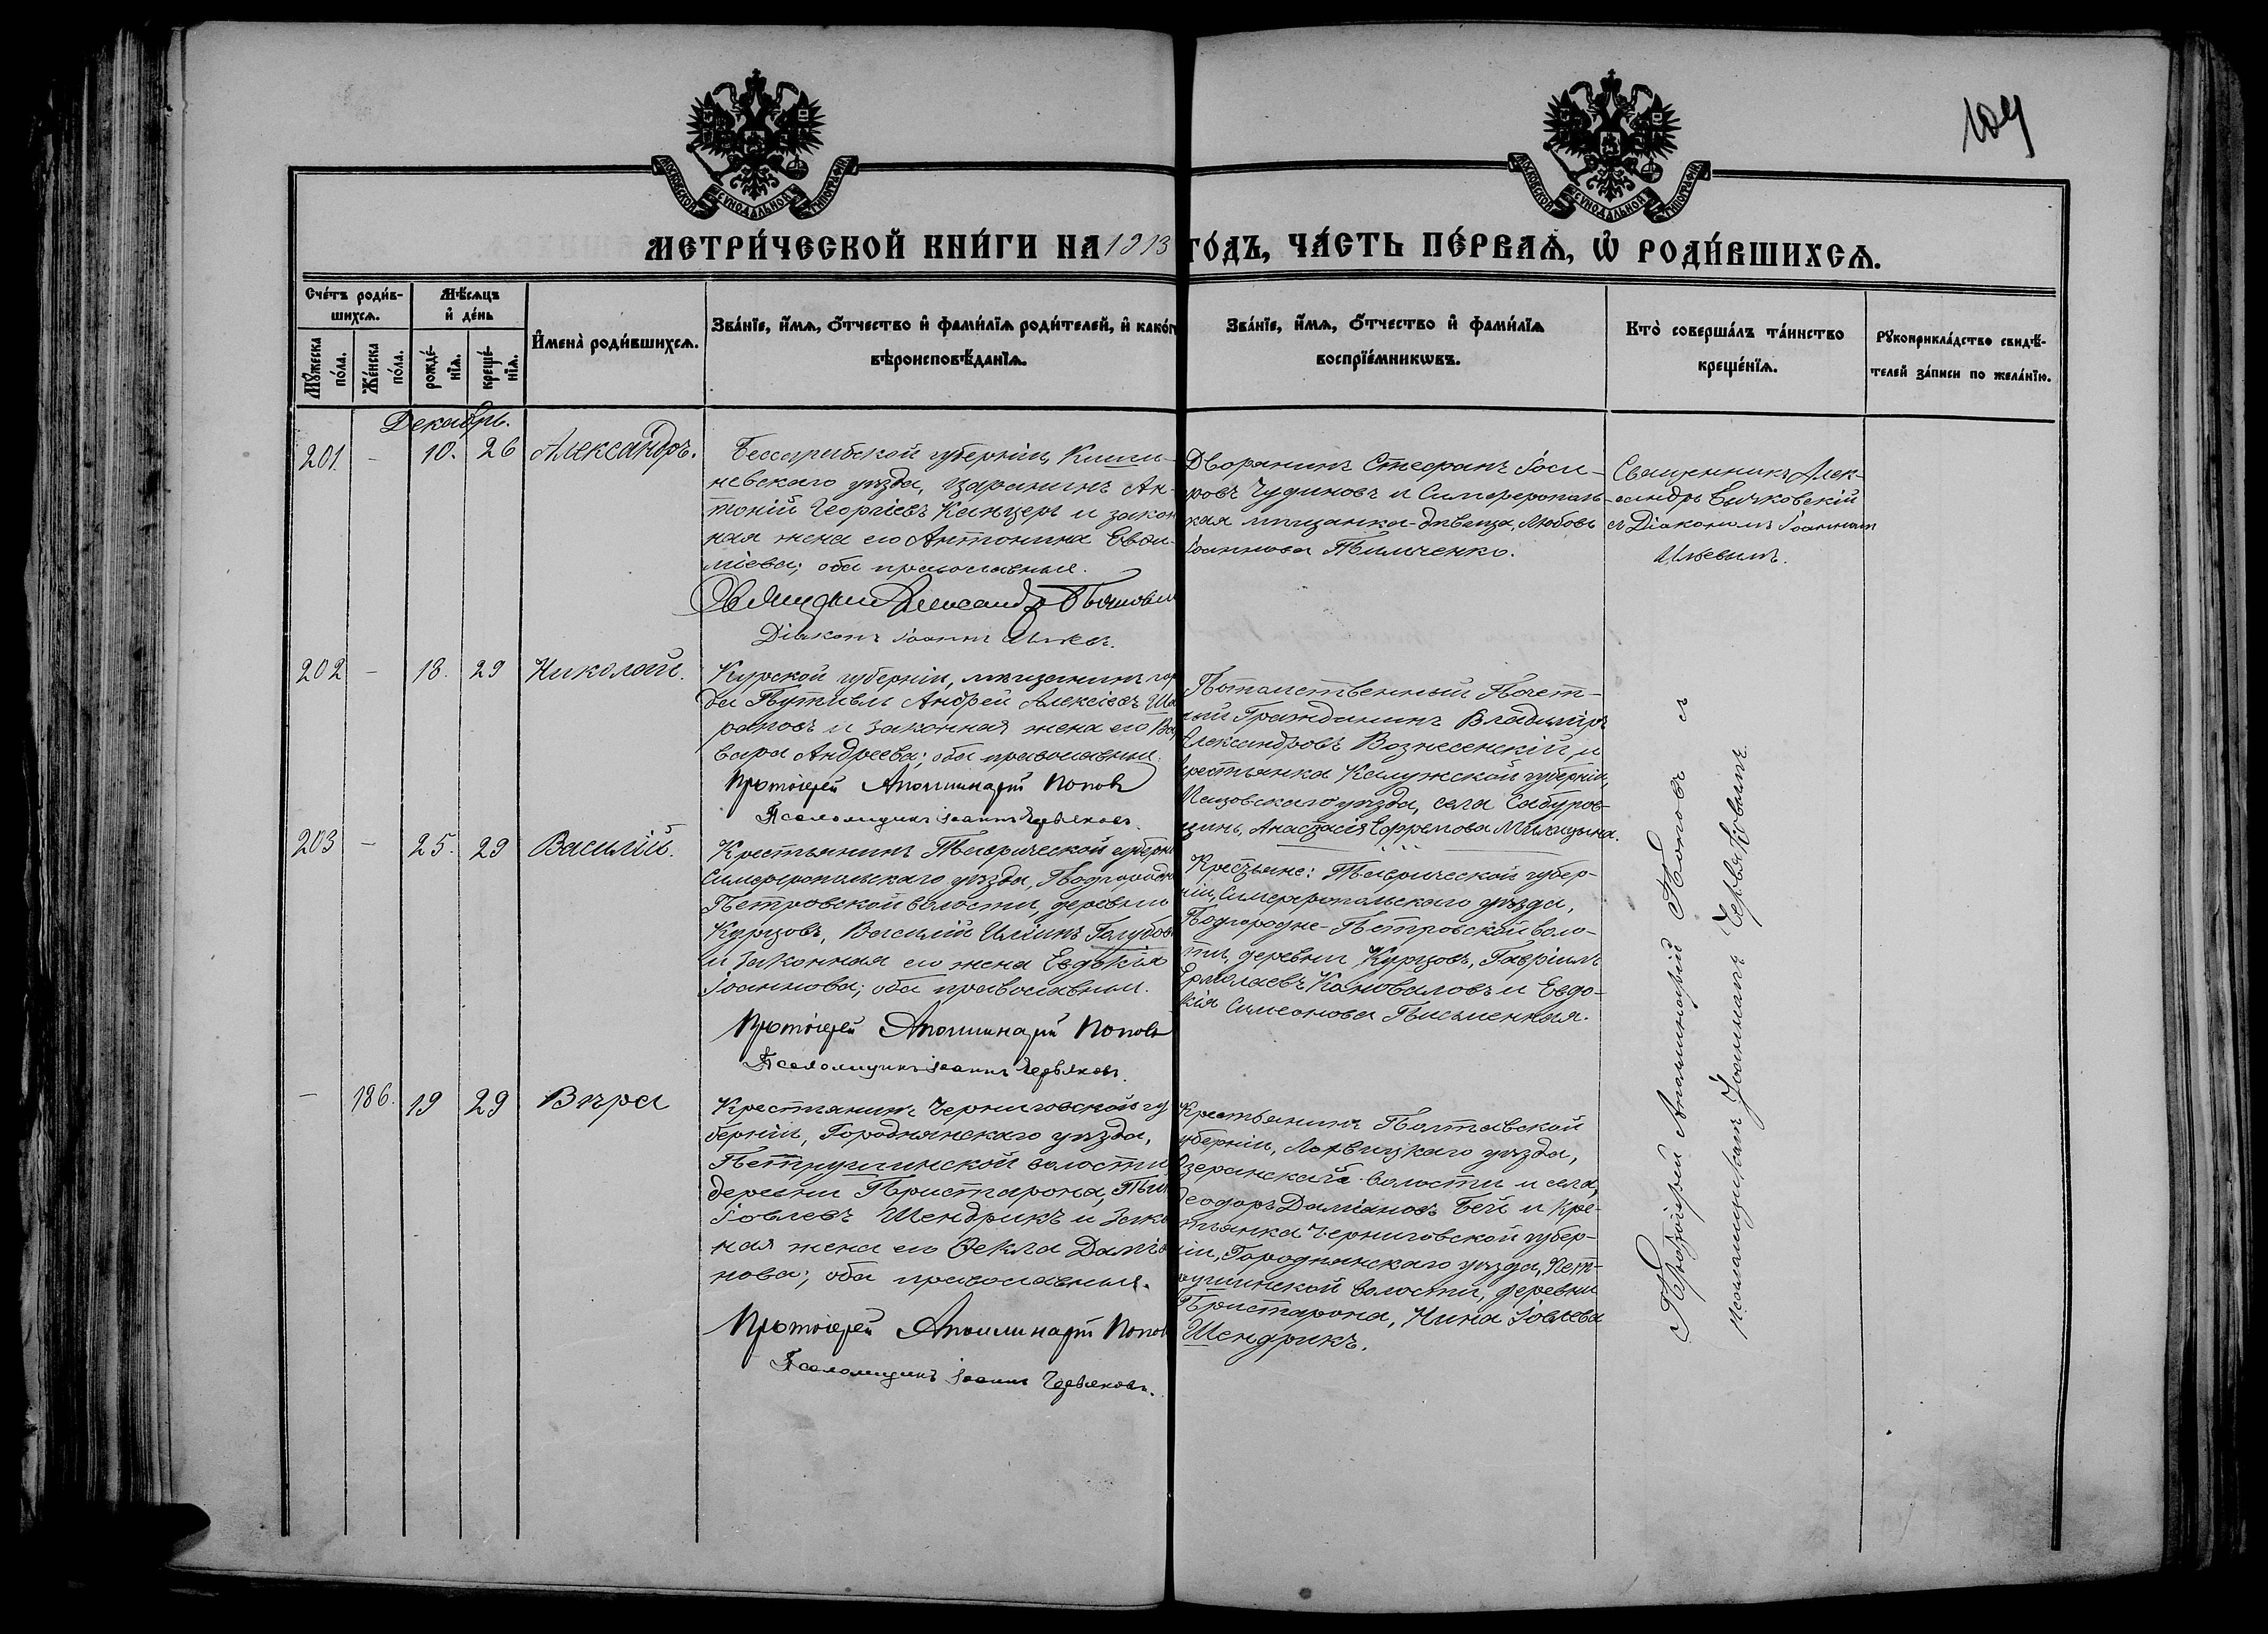 109
МОСКОВСКОЙ СѴНОДАЛЬНОЙ ТИПОГРАФІИ
МОСКОВСКОЙ СѴНОДАЛЬНОЙ ТИПОГРАФІИ
МЕТРИ́ЧЕСКОЙ КНИ́ГИ НА 1913 ГО́ДЪ, ЧА́СТЬ ПЕ́РВАѦ, Ѡ҆ РОДИ́ВШИХСѦ.
Сче́тъ роди́в-
шихсѧ.
Мꙋ́жеска
по́ла.
Же́нска
по́ла.
Мѣ́сѧцъ
и҆ де́нь
рожде́-
нїѧ.
креще́-
нїѧ.
И҆мена̀ роди́вшихсѧ.
Зва́нїе, и҆́мѧ, ѻ҆́тчество и҆ фами́лїѧ роди́телей, и҆ како́г
вѣроисповѣ́данїѧ.
Зва́нїе, и҆́мѧ, ѻ҆́тчество и҆ фами́лїѧ
воспрїе́мникѡвъ.
Кто̀ соверша́лъ та́инство
креще́нїѧ.
Рꙋкоприкла́дство свидѣ́-
телей за́писи по жела́нїю.
Декабрь.
201. - 10. 26 Александръ.
Бессарабской губерніи, Киши-
невскаго уѣзда, царанинъ Ан-
тоній Георгіевъ Канцеръ и закон
ная жена его Антонина Евѳи-
міева; оба православные.
Священникъ Александръ
Діаконъ Іоаннъ
Дворянинъ Стефанъ Іоси-
ровъ Чудиновъ и Симферополь-
кая мѣщанка-дѣвица, Любовь
Іоаннова Тимченко.
Священникъ Алек-
сандръ
съ Діакономъ Іоанномъ
202 - 18. 29 Николай.
Курской губерніи, мѣщанинъ гор
да Путивль Андрей Алексіевъ Ша
рановъ и законная жена его Вар
вара Андреева; оба православные.
Протоіерей Аполлинарій Поповъ
Псаломщикъ Іоаннъ Червяковъ.
Потомственный Почет-
ный Гражданинъ Владиміръ
Александровъ Вознесенскій и
крестьянка Калужской губерніи,
Мещовскаго уѣзда, села Сабуров-
щины, Анастасія Ефремова
203 - 25. 29 Василій.
Крестьянинъ Таврической губерн
Симферопольскаго уѣзда, Подгородн
Петровской волости, деревни
Курцовъ, Василій Иліинъ Голубов
и законная его жена Евдокія
Іоаннова; оба православные.
Протоіерей Аполлинарій Поповъ
Псаломщикъ Іоаннъ Червяковъ.
Крестьяне: Таврической губер-
ніи, Симферопольскаго уѣзда,
Подгородне-Петровской воло-
сти, деревни Курцовъ, Гавріилъ
Ермолаевъ Коноваловъ и Евдо-
кія Симеонова Письменная.
- 186. 19 29 Вѣра
Крестьянинъ Черниговской гу
берніи, Городнянскаго уѣзда,
Петрушинской волости,
деревни Пристарона,
Іовлевъ Шендрикъ и зако
ная жена его Ѳекла Даміа
нова; оба православные.
Протоіерей Аполлинарій Попов
Псаломщикъ Іоаннъ Червяковъ.
Крестьянинъ Полтавской
губерніи, Лохвицкаго уѣзда,
Озеранской волости и села,
Ѳеодоръ Даміановъ Бей и кре-
стьянка Черниговской губер-
ніи, Городнянскаго уѣзда, Пет-
рушинской волости, деревни
Пристарона, Нина Іовлева
Шендрикъ.
Протоіерей Аполлинарій Поповъ съ
псаломщикомъ Іоанномъ Червяковымъ.